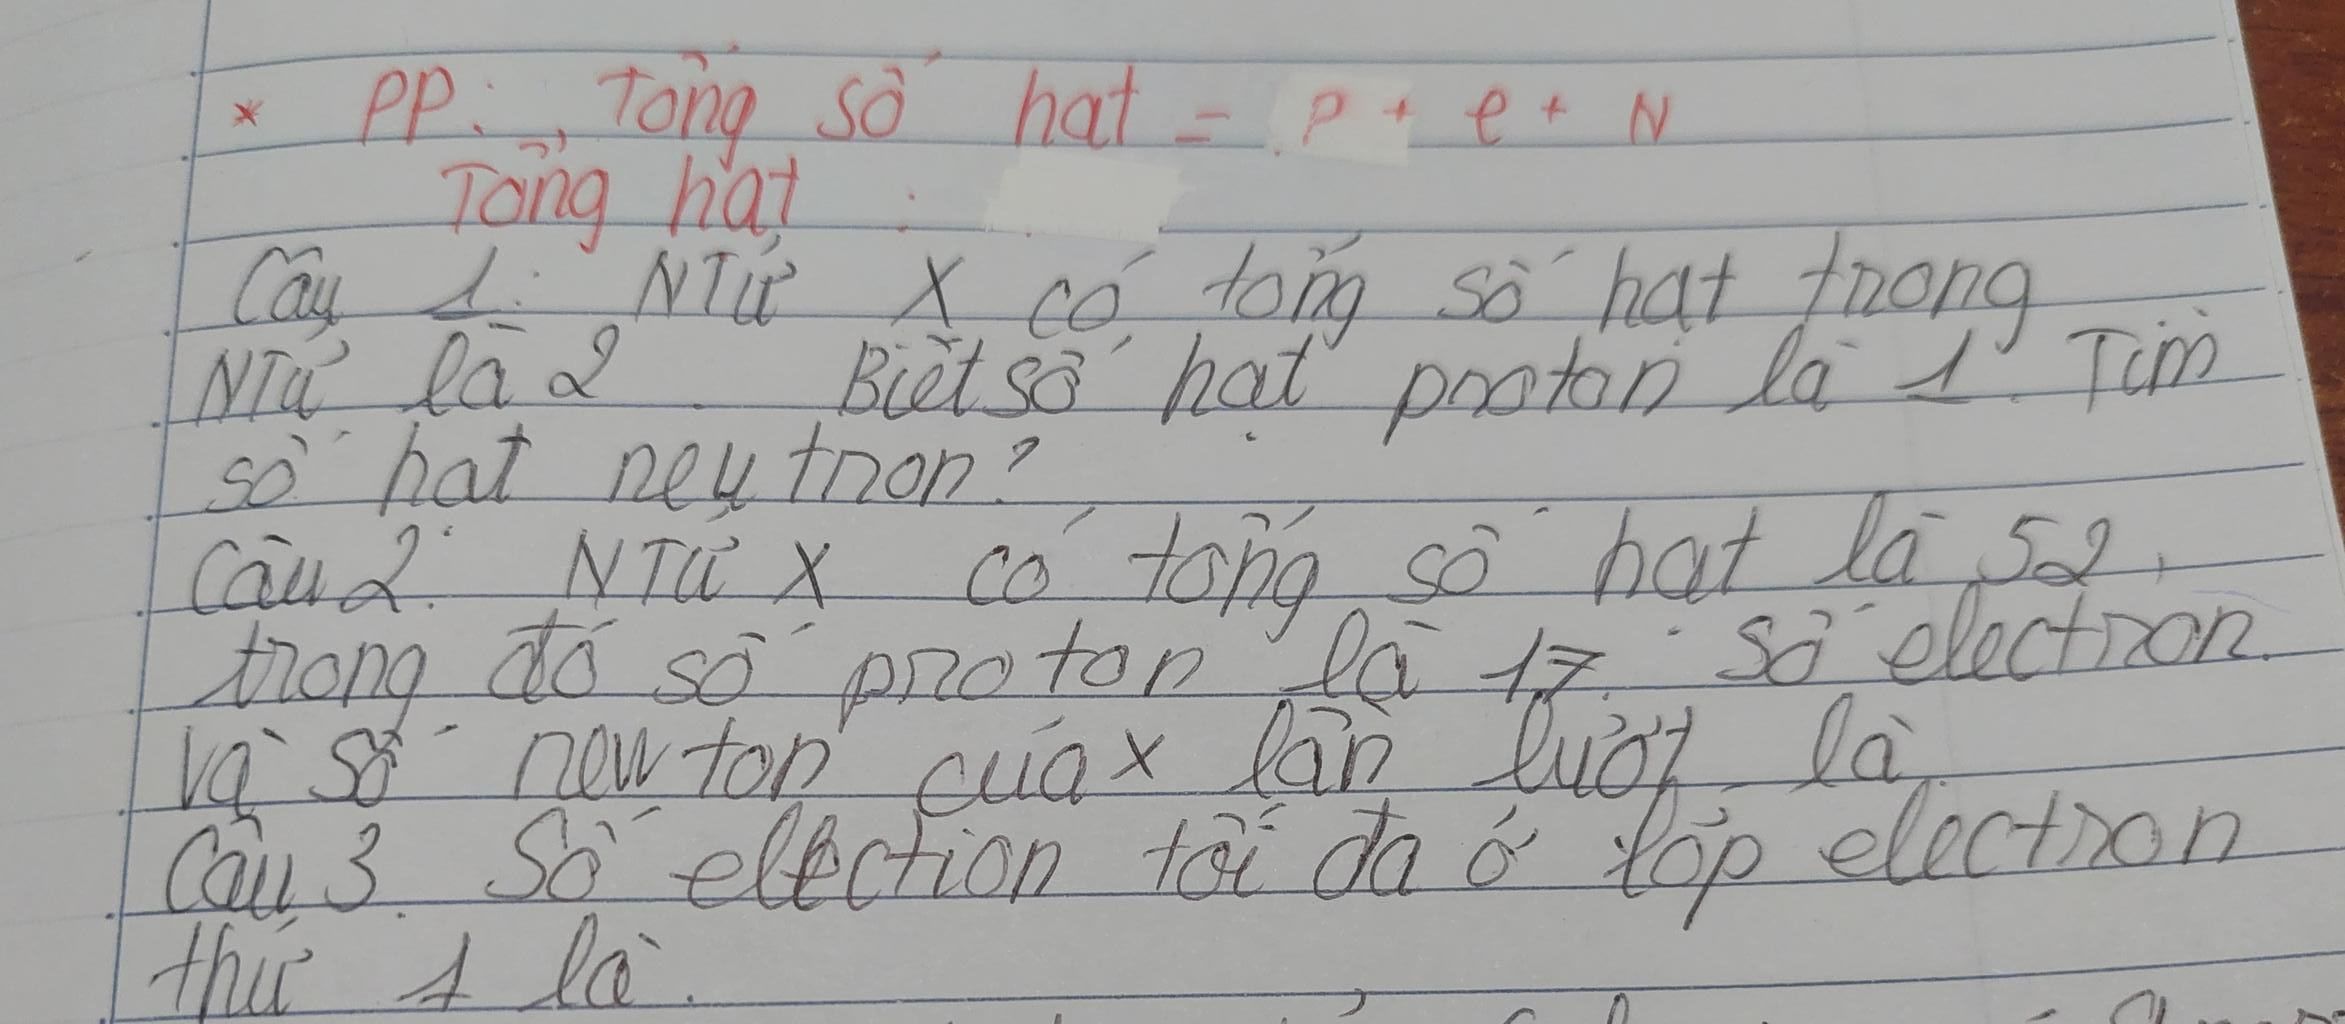 * PP: Tổng số hat = P + e + N
Tổng hạt :
Câu 1: NTử X có tổng số hạt trong
NTử là 2. Biết số hạt proton là 1. Tìm
số hat neutron?
Câu 2: NTử X có tổng số hat là 52,
trong đó số proton là 17. Số electron
và số newton của x lần lượt là
Câu 3. Số elećtion tối đa ở lớp electron
thứ 1 là.